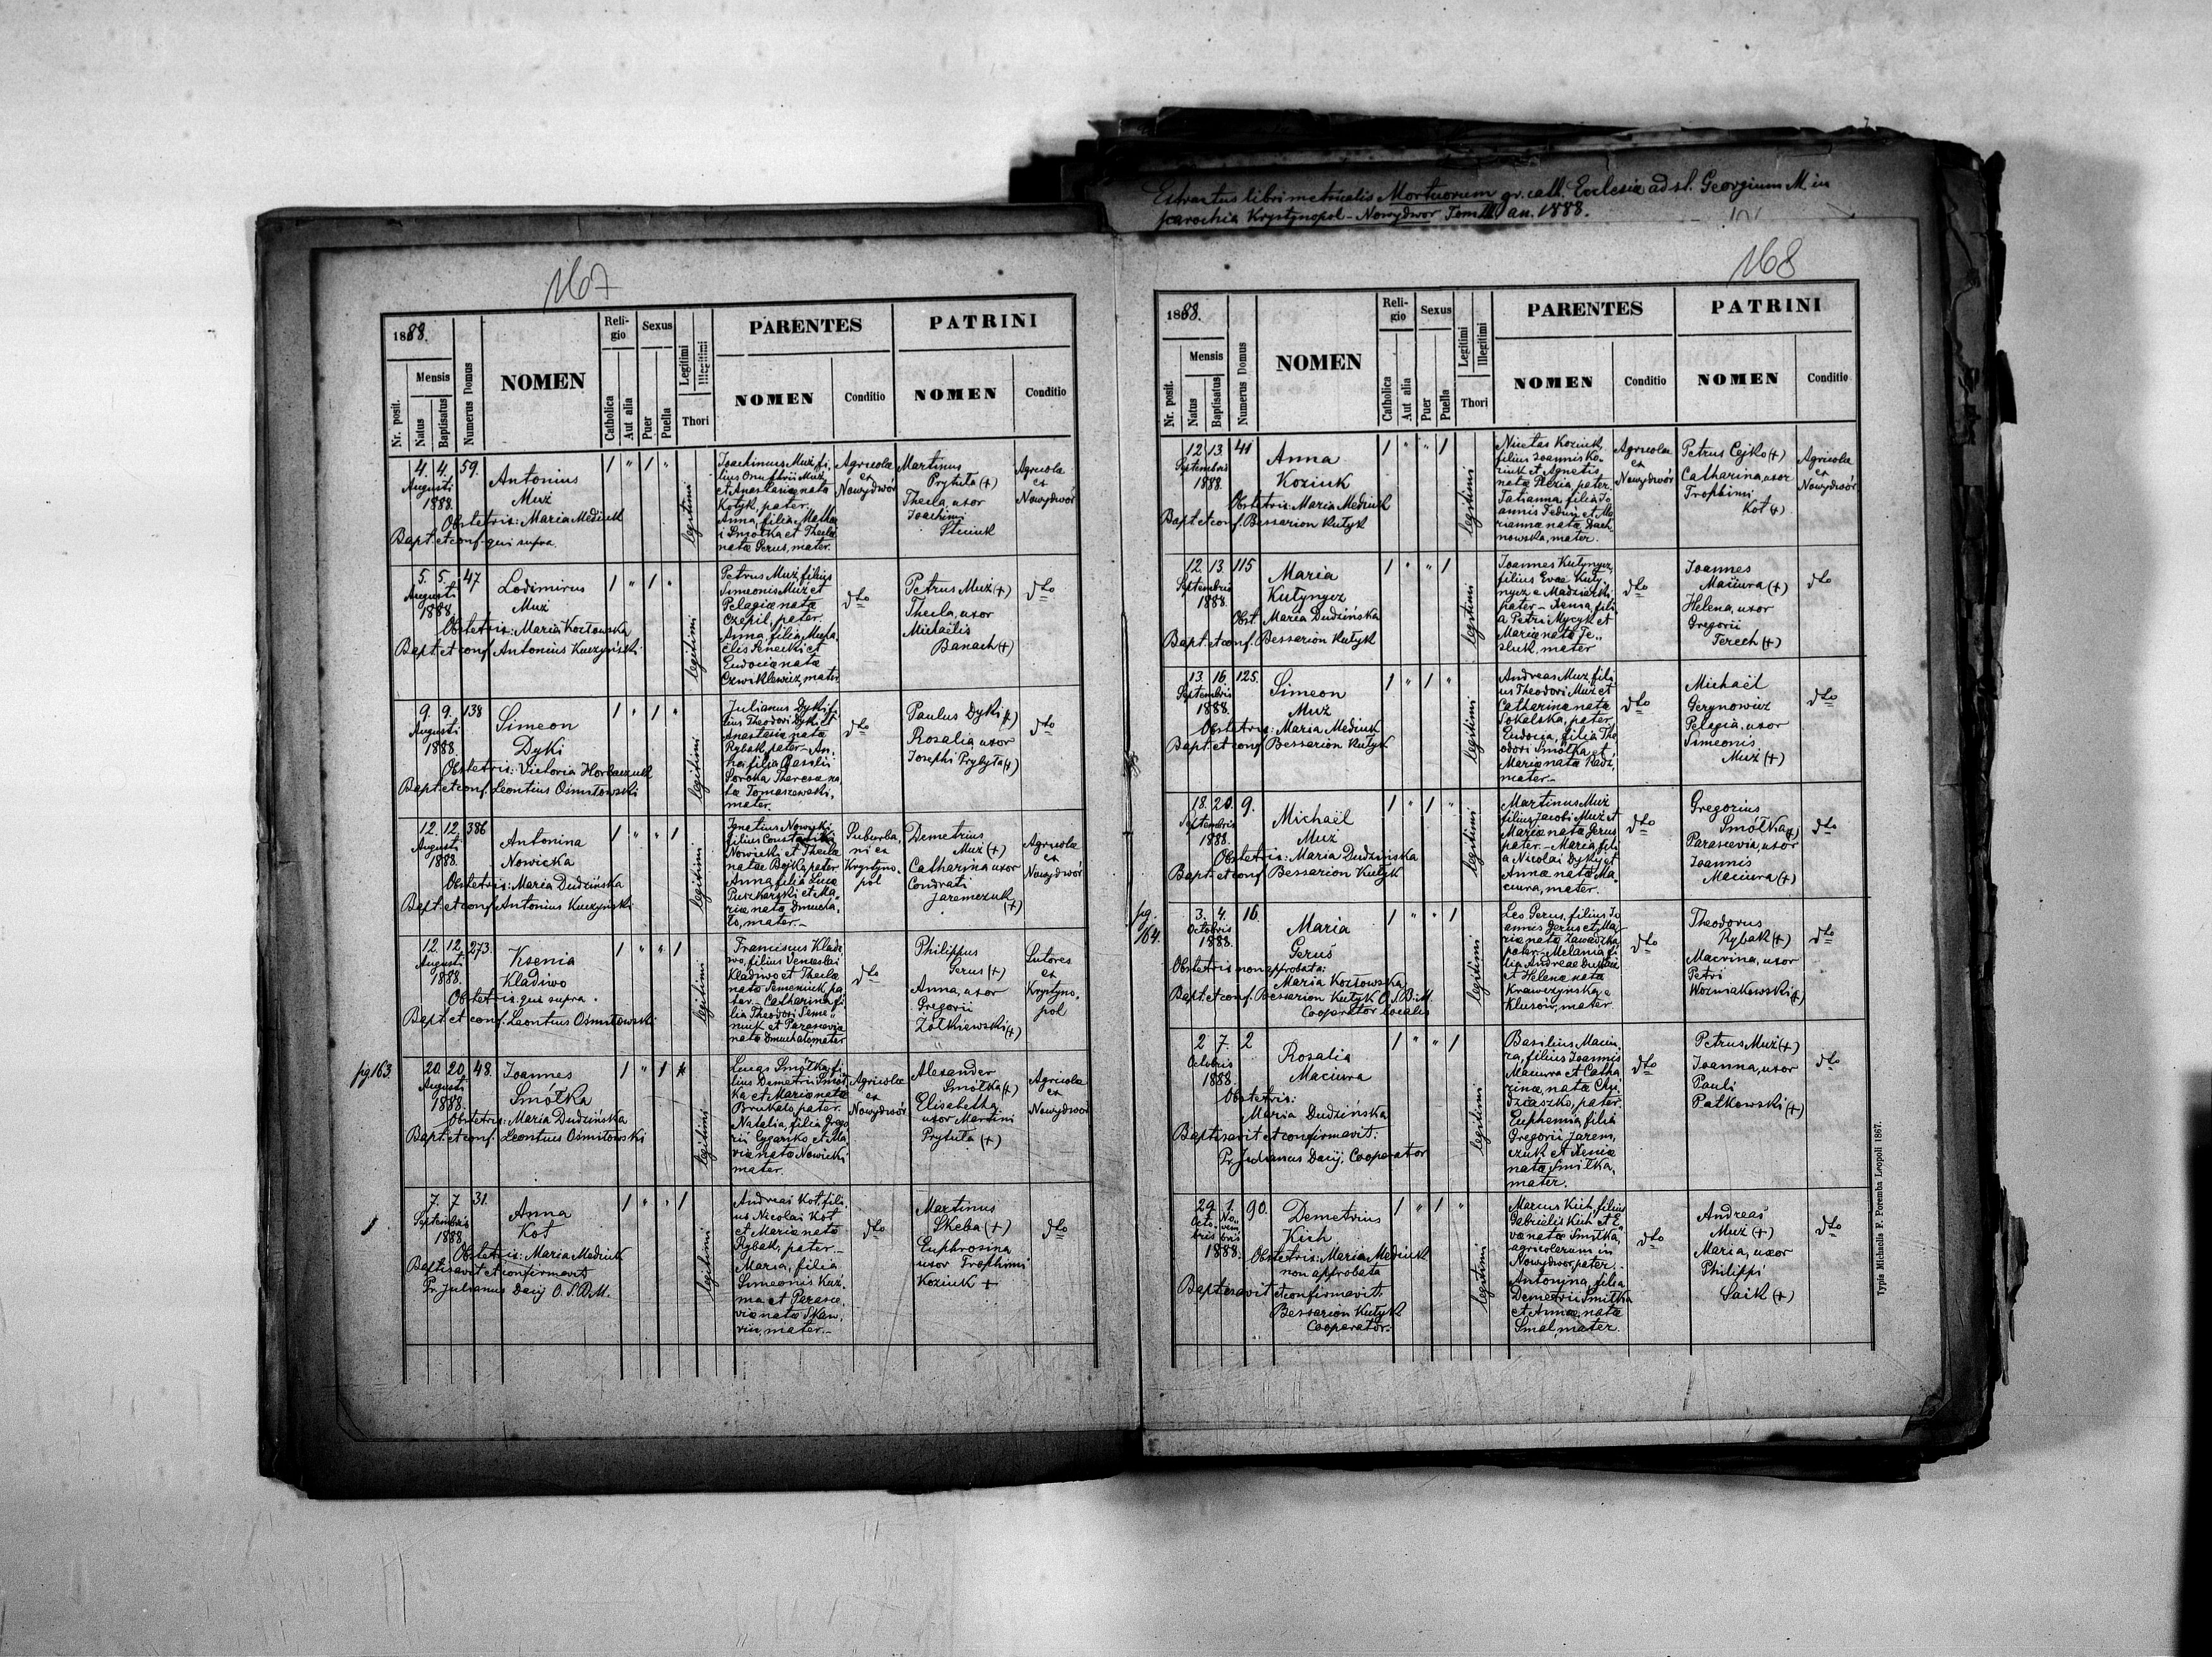 Extractus libri metricalis Mortuorum gr. cath. Ecclesiæ ad st. Georgium M. in
parochia Krystynopol-Nowydwor Tom III an. 1888.
167
1888.
Nr. posit.
Mensis
Natus
Baptisatus
Numerus Domus
NOMEN
Religio
Catholica
Aut alia
Sexus
Puer
Puella
Legitimi
Illegitimi
Thori
PARENTES
NOMEN
Conditio
PATRINI
NOMEN
Conditio
4. 4. 59.
Augusti
1888.
Antonius
Muż
Obstetrix: Maria Mediuk
Bapt. et conf. qui supra.
1 " 1 "
legitimi
Joachimus Muż, fi-
lius Onufrii Muż
et Anastasiæ nata
Kotyk, pater.
Anna, filia Mathæ
i Smótka et Theclæ
natæ Gerus, mater.
Agricolæ
ex
Nowydwór
Martinus
Prytuła (+)
Thecla, uxor
Joachimi
Agricolæ
ex
Nowydwór
5. 5. 47
Augusti
1888.
Lodimirus
Muż
Obstetrix: Maria Kozłowska
Bapt. et conf. Antonius Kuczyński
1 " 1 "
legitimi
Petrus Muż, filius
Simeonis Muż et
Pelagiæ nata
Czepil, pater.
Anna, filia Micha
elis Senecki et
Eudociæ nata
Czwiklewicz, mater
dto
Petrus Muż (+)
Thecla, uxor
Michaëlis
Banach (+)
dto
9. 9. 138
Augusti
1888.
Simeon
Dyki
Obstetrix: Victoria Horbaczuk
Bapt. et conf. Leontius Ośmiłowski
1 " 1 "
legitimi
Julianus Dyki, fi-
lius Theodori Dyki et
Anastasiæ nata
Rybak, pater - An-
na, filia Basilii
Soroka Theresæ na
ta Tomaszewski,
mater.
dto
Paulus Dyki (+)
Rosalia, uxor
Josephi Prybyła (+)
dto
12. 12. 386
Augusti
1888.
Antonina
Nowicka
Obstetrix: Maria Dudzińska
Bapt. et conf. Antonius Kuczyński
1 " " 1
legitimi
Ignatius Nowicki,
filius Constantini
Nowicki et Theclæ
natæ Bojko, pater
Anna, filia Lucæ
Puszkarski et Ma
riæ nata Dmucha
to, mater.-
Suburba
ni ex
Krystyno-
pol
Demetrius
Muż (+)
Catharina uxor
Condrati
Jaremczuk
(+)
Agricolæ
ex
Nowydwór
12. 12. 273.
Augusti
1888.
Ksenia
Kladiwo
Obstetrix qui supra.
Bapt. et conf. Leontius Ośmiłowski
1 " " 1
legitimi
Franciscus Kladi
wo, filius Venceslai
Kladiwo et Theclæ
nata Semeniuk pa
ter. - Catharina fi
lia Theodori Seme"
niuk et Parasceviæ
nata Dmuchato, mater
dto
Philippus
Gerus (+)
Anna, uxor
Gregorii
Żółkiewski (+)
Sutores
ex
Krystyno-
pol
pg 163.
20. 20. 48.
Augusti
1888.
Joannes
Smółka
Obstetrix: Maria Dudzińska
Bapt. et conf. Leontius Ośmiłowski
1 " 1
legitimi
Lucas Smółka, fi-
lius Demetrii Smół
ka et Mariæ nata
Brukało, pater.
Natalia, filia Grego
rii Cyganko et Ma
riæ nata Nowicki
mater.
Agricolæ
ex
Nowydwór
Alexander
Smółka (+)
Elisabetha
uxor Martini
Prytuła (+)
Agricolæ
ex
Nowydwór
7. 7. 31.
Septembris
1888
Anna
Kot
Obstetrix: Maria Mediuk
Baptisavit et confirmavit
Pr. Julianus Dacij O. S. B. M.
1 " " 1
legitimi
Andreas Kot, fili-
us Nicolai Kot
et Mariæ nata
Rybak, pater.-
Maria, filia
Simeonis Kuź
ma et Parasce-
viæ nata Skaw
mater.-
dto
Martinus
Skeba (+)
Euphrosina
uxor Trophimi
Koziuk +
dto
168
1888.
Nr. posit.
Mensis
Natus
Baptisatus
Numerus Domus
NOMEN
Religio
Catholica
Aut alia
Sexus
Puer
Puella
Legitimi
Illegitimi
Thori
PARENTES
NOMEN
Conditio
PATRINI
NOMEN
Conditio
12. 13. 41
Septembris
1888.
Anna
Koziuk
Obstetrix: Maria Mediuk
Bapt. et conf. Bessarion Kutyk
1 " " 1
legitimi
Nicetas Koziuk,
filius Joannis Ko-
ziuk et Agnetis
nata pater,
Tatianna, filia Jo
annis Feduij et Ma
riannæ nata Dach
nowska, mater.
Agricolæ
ex
Nowydwór
Petrus Cejko (+)
Catharina uxor
Trophimi
Kot (+)
Agricolæ
ex
Nowydwór
12. 13. 115
Septembris
1888.
Maria
Kutynycz
Obst. Maria Dudzińska
Bapt. et conf. Bessarion Kutyk
1 " " 1
legitimi
Joannes Kutynycz,
filius Evæ Kuty-
nycz e Madziarki
pater - Xenia, fili
a Petri Mycyk et
Mariæ nata Te"
sluk, mater
dto
Joannes
Maciura (+)
Helena, uxor
Gregorii
Terech (+)
dto
13. 16. 125.
Septembris
1888.
Simeon
Muż
Obstetrix: Maria Mediuk
Bapt. et conf. Bessarion Kutyk
1 " 1 "
legitimi
Andreas Muż, fili
us Theodori Muż et
Catharinæ nata
Sokalska, pater,
Eudocia, filia The
odori Smółka et
Mariæ nata Kadz,
mater.-
dto
Michaël
Gerynowicz
Pelagia, uxor
Simeonis
Muż (+)
dto
18. 20. 9.
Septembris
1888.
Michaël
Muż
Obstetrix: Maria Dudzińska
Bapt. et conf. Bessarion Kutyk
1 " 1 "
legitimi
Martinus Muż
filius Jacobi Muż et
Mariæ nata Gerus
pater.- Maria, fili
a Nicolai Dyky et
Annæ nata Ma-
ciura, mater.
dto
Gregorius
Smółka (+)
Parascevia, uxor
Joannis
Maciura (+)
dto
pg.
164.
3. 4. 16.
Octobris
1888.
Maria
Geruś
Obstetrix non approbata:
Maria Kozłowska
Bapt. et conf. Bessarion Kutyk O. S. B. M.
Cooperator localis
1 " " 1
legitimi
Leo Gerus, filius Jo
annis Gerus et Ma
riæ nata Zawadzka,
pater.- Melania, fi
lia Andreæ
et Helenæ nata
Krawczyńska e
Klusow, mater.
dto
Theodorus
Rybak (+)
Macrina, uxor
Petri
Wozniakowski (+)
dto
2 7. 2
Octobris
1888
Rosalia
Maciura
Obstetrix:
Maria Dudzińska
Baptisavit et confirmavit:
Pr. Julianus Dacij, Cooperator
1 " " 1
legitimi
Basilius Maciu-
ra, filius Joannis
Maciura et Catha
rinæ, nata
pater.
Euphemia, filia
Gregorii Jarem,
czuk et Xeniæ
nata Smitka,
mater.
dto
Petrus Muż (+)
Joanna, uxor
Pauli
Patkowski (+)
dto
29. 1. 90.
Octo- No-
bris vem
bris
1888.
Demetrius
Kich
Obstetrix: Maria Mediuk
non approbata
Baptisavit et confirmavit:
Bessarion Kutyk
Cooperator.
1 " 1 "
legitimi
Marcus Kich, filius
Gabrielis Kich et E-
væ nata Smitka,
agricolarum in
Nowydwor, pater.-
Antonina, filia
Demetrii Smitka
et Annæ, nata
Smal, mater.
dto
Andreas
Muż (+)
Maria, uxor
Philippi
Saik (+)
dto
Typis Michaelis F. Poremba Leopoli 1867.